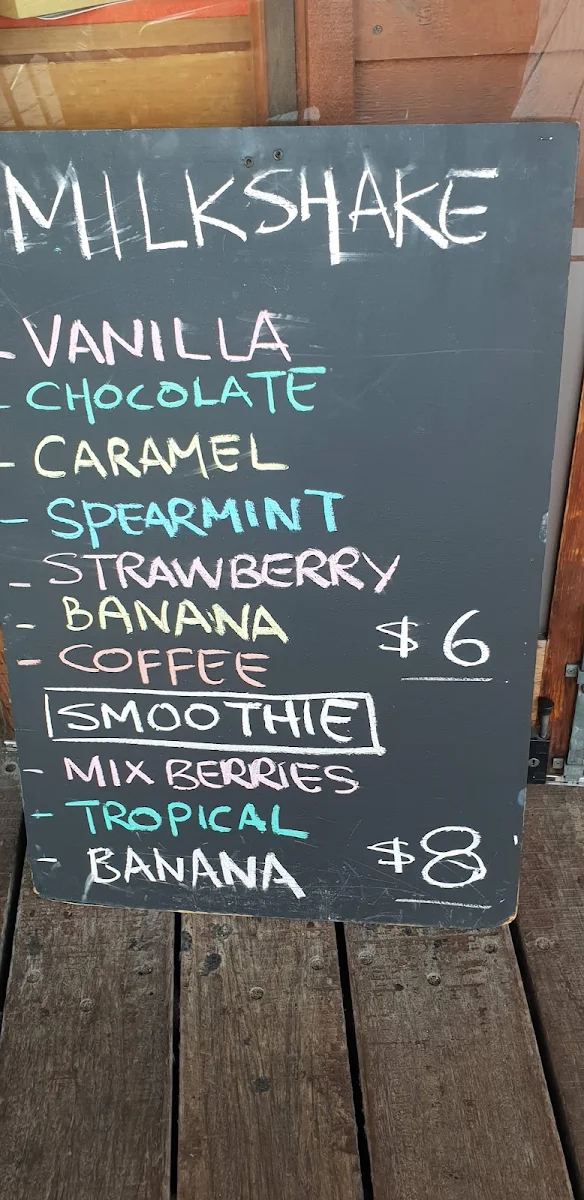 MILKSHAKE
- VANILLA
- CHOCOLATE
- CARAMEL
- SPEARMINT
- STRAWBERRY
- BANANA $6
- COFFEE
SMOOTHIE
- MIX BERRIES
- TROPICAL
- BANANA $8